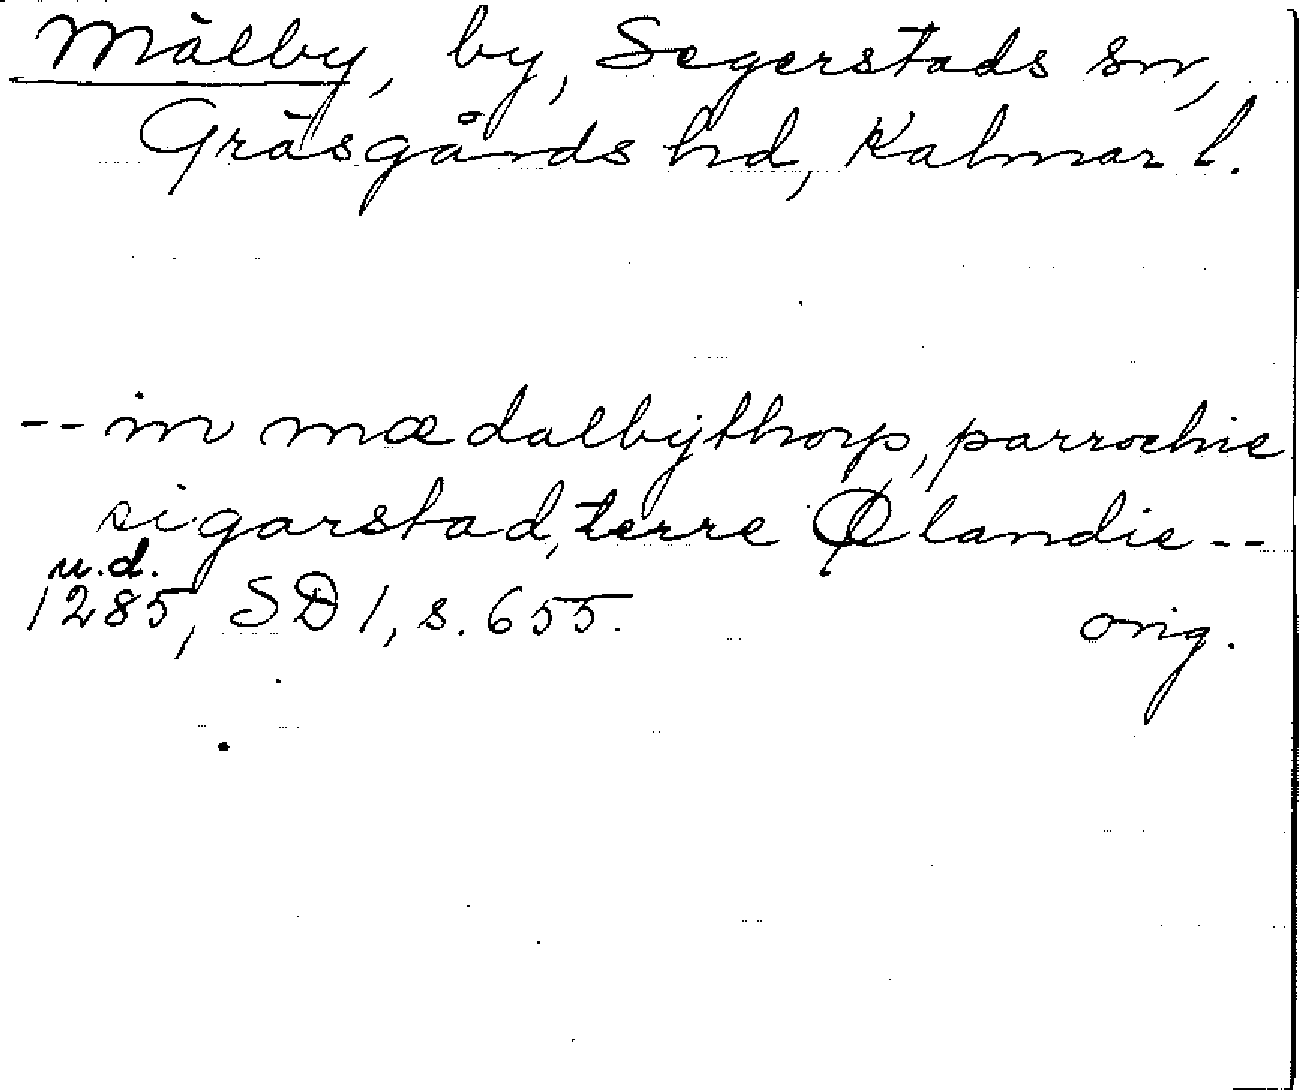 Mälby, by, Segerstads sn,
Gräsgårds hd, Kalmar l.
-- in mædalbythorp, parrochie
sigarstad, terre Ølandie --
u.d.
1285, SD 1, s. 655.
orig.